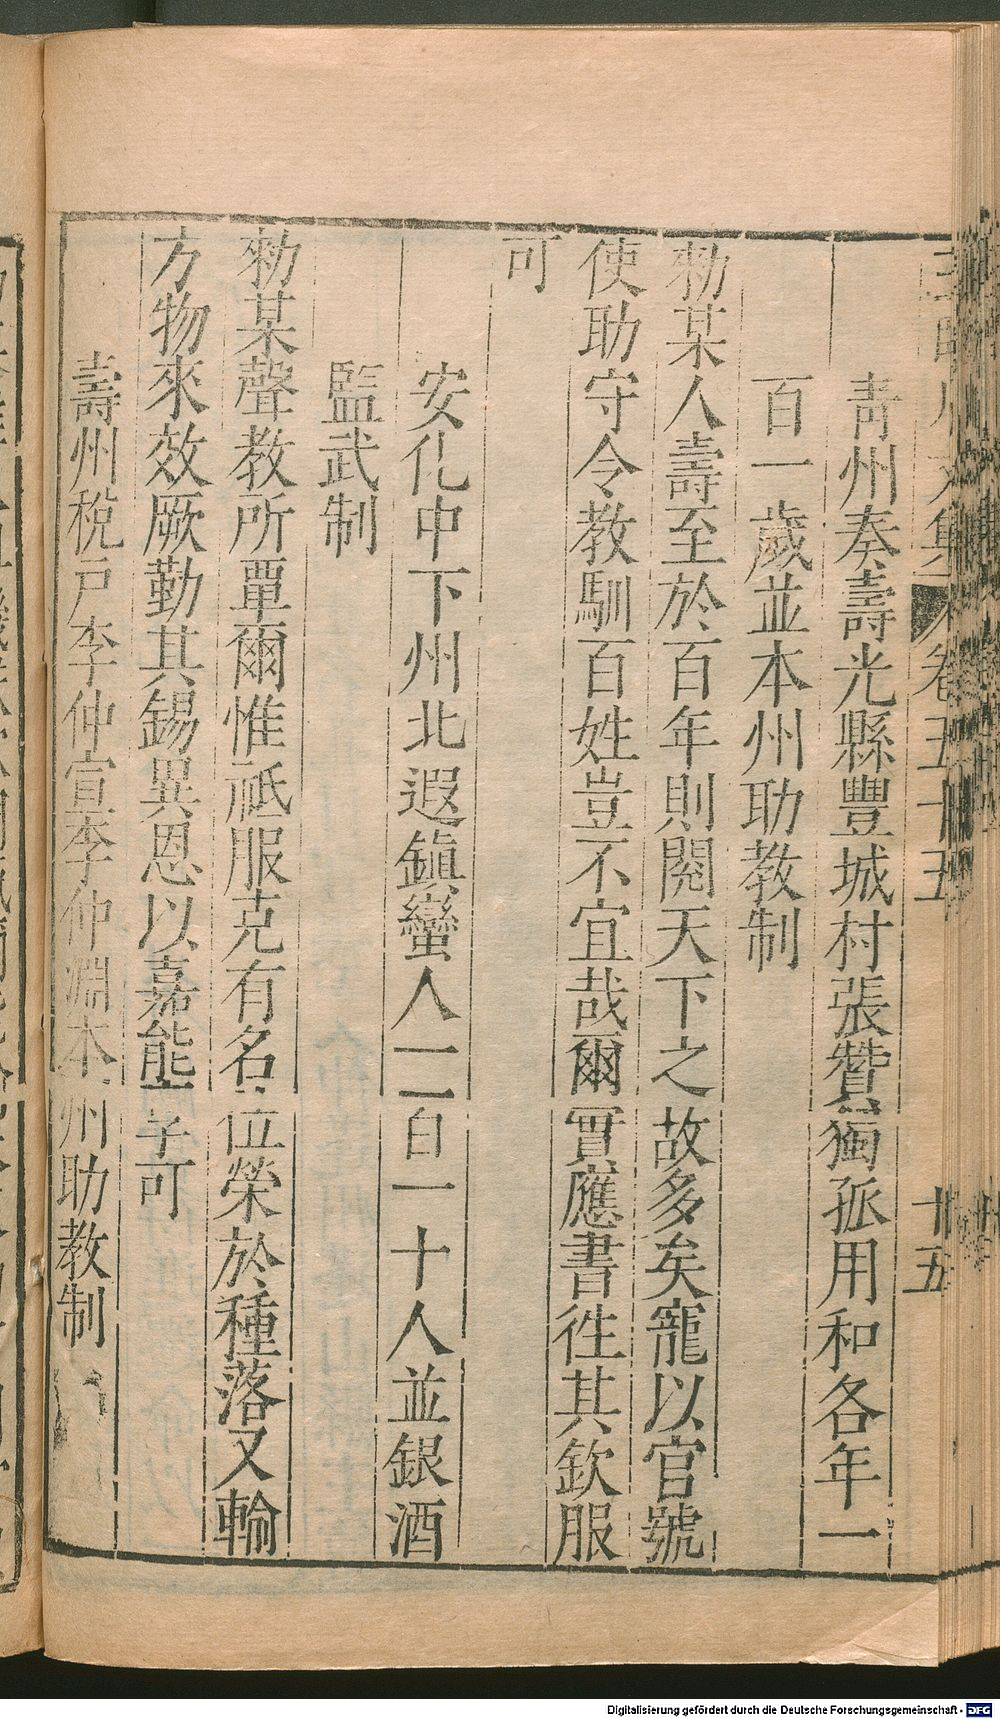 青州奏壽光縣豐城村張贊獨孤用和各年一
百一歲並本州助教制
勑某人壽至於百年則閱天下之故多矣寵以官號
使助守令教馴百姓豈不宜哉爾實應書徃其欽服
可
安化中下州北遐鎭蠻人一百一十人並銀酒
監武制
勑某聲教所覃爾惟祗服克有名位榮於種落又輸
方物來效厥勤其錫異恩以嘉能享可
壽州稅戶李仲宣李仲淵本州助教制
卷五十五
十五
Digitalisierung gefördert durch die Deutsche Forschungsgemeinschaft - DFG